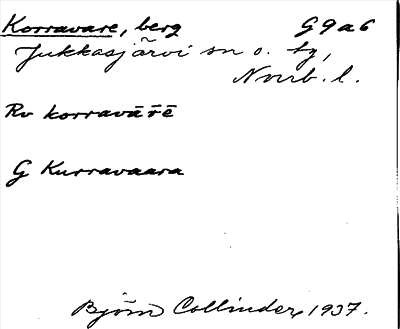 Korravare, berg G9a6
Jukkasjärvi sn o. tg,
Nvrrb. l.
Rv korravārē
G Kurravaara
Björn Collinder, 1937.